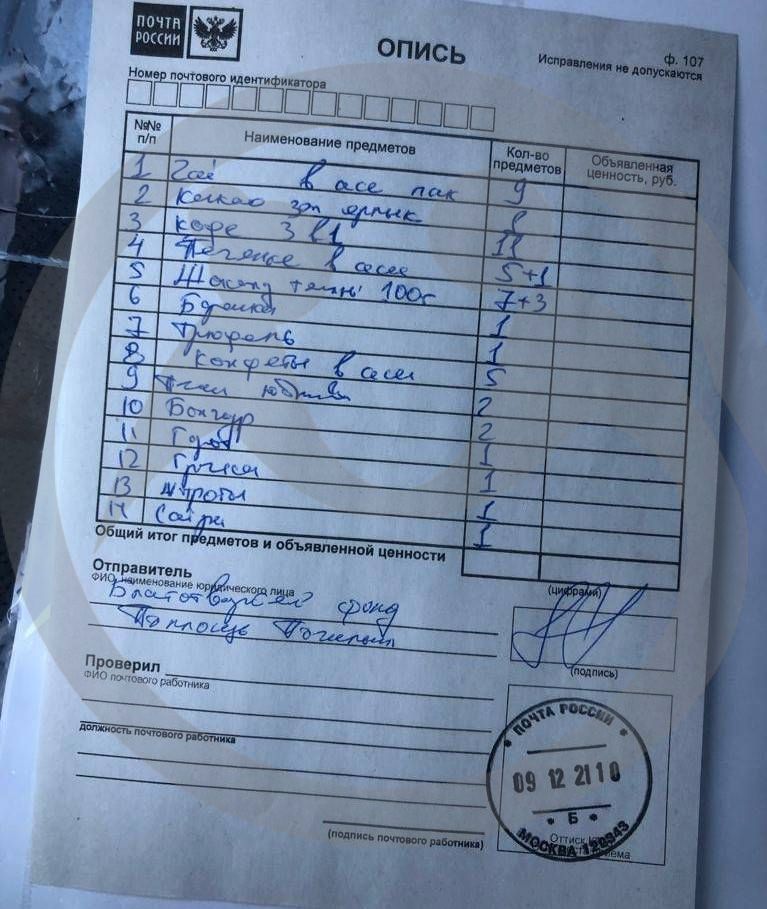 ПОЧТА
РОССИИ
ОПИСЬ
ф. 107
Исправления не допускаются
Номер почтового идентификатора
№№ п/п Наименование предметов Кол-во предметов Объявленная ценность, руб.
1 Чай в асс пак 9
2 Какао зол ярлык 1
3 Кофе 3 в 1 11
4 Печенье в ассе 5+1
5 Шокол темн 100г 7+3
6 1
7 Трюфель 1
8 Конфеты в ассе 5
9 2
10 Булгур 2
11 Горох 1
12 Гречка 1
13 Шпроты 1
14 Сайра 1
Общий итог предметов и объявленной ценности
(цифрами)
Отправитель
ФИО, наименование юридического лица
фонд
Помощь
(подпись)
Проверил
ФИО почтового работника
должность почтового работника
(подпись почтового работника)
ПОЧТА РОССИИ
09 12 21 10
Б
МОСКВА
Оттиск